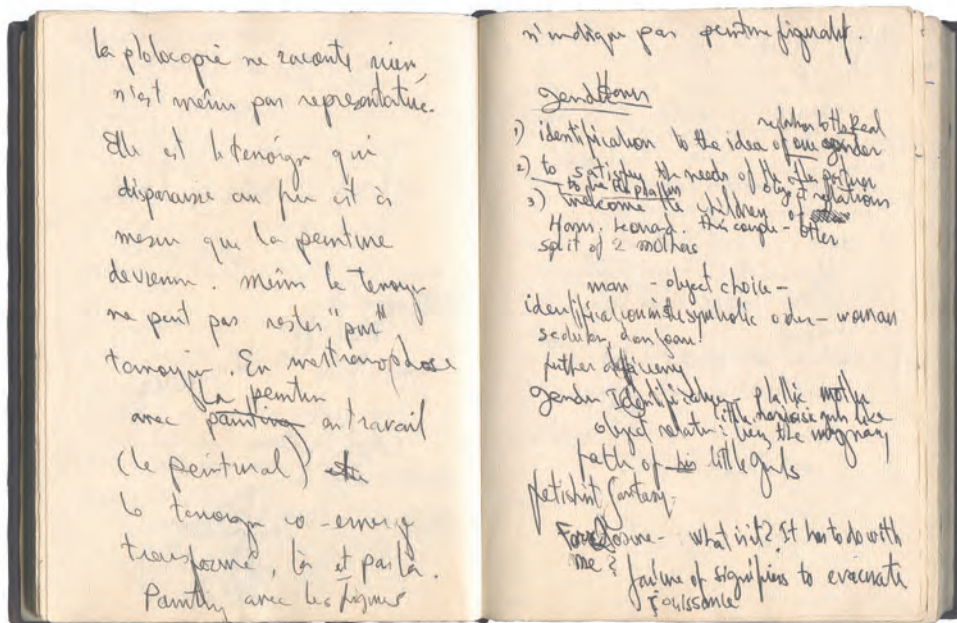 la photocopie ne raconte rien,
n'est même pas représentative.
Elle est le témoin qui
disparaisse au fur est à
mesur que la peinture
devienne. même le temoin
ne peut pas rester "pur"
temoin. En metramophose
La peinture
avec painting en travail
(le peintural)
le temoin co-emerge
transformé, là et par là.
Painting avec les figures
n'indique pas peinture figuratif.
gender Hans
relation to the Real
1) identification to the idea of one gender
2) to satisfy the needs of the other partner
to be the phallus object relations
3) welcome the children of
Hans. Leonard. this couple - other
split of 2 mothers
man - object choice -
identification in the symbolic order - woman
seducer, don Joan!
father deficiency
gender Identification - phallic mother
little narcissic girl like
object relation: lien, the imaginary
path of his little girls
fetishist fantasy -
Foreclosure - what is it? It has to do with
me? failure of signifiers to evacuate
jouissance